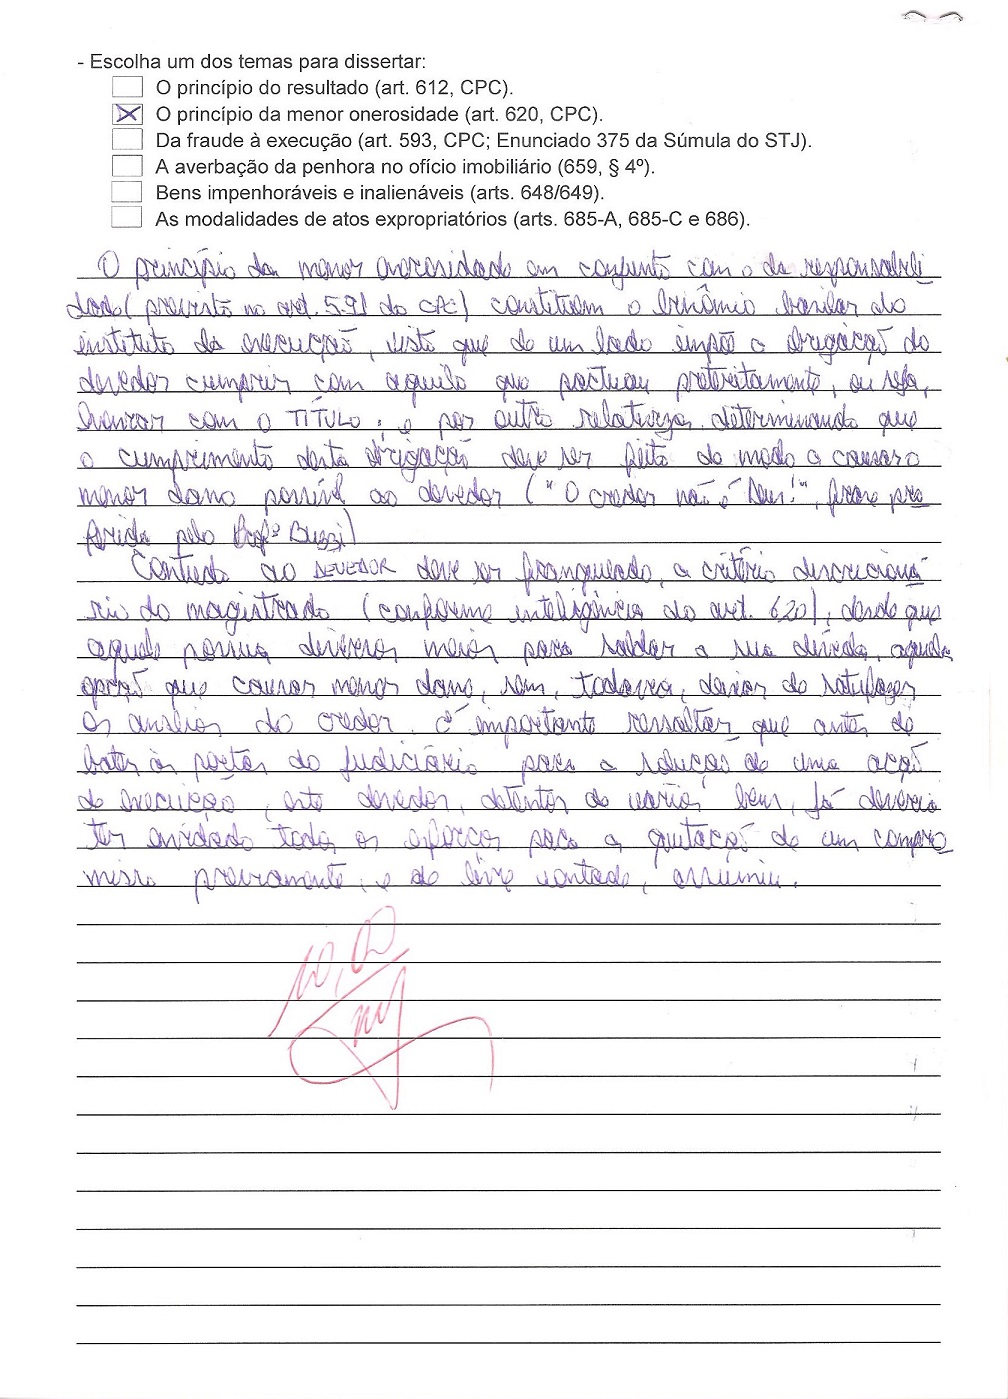 - Escolha um dos temas para dissertar:
O princípio do resultado (art. 612, CPC).
O princípio da menor onerosidade (art. 620, CPC).
Da fraude à execução (art. 593, CPC; Enunciado 375 da Súmula do STJ).
A averbação da penhora no ofício imobiliário (659, § 4º).
Bens impenhoráveis e inalienáveis (arts. 648/649).
As modalidades de atos expropriatórios (arts. 685-A, 685-C e 686).
O princípio da menor onerosidade em conjunto com o da responsabili
dade (previsto no art. 591 do CPC) constituem o binômio basilar do
instituto da execução, visto que de um lado impõe a obrigação do
devedor cumprir com aquilo que pactuou preteritamente, ou seja,
honrar com o TÍTULO; e por outro relativiza, determinando que
o cumprimento desta obrigação deve ser feito de modo a causar o
menor dano possível ao devedor ("O credor não é Deus!", frase pro
ferida pelo Profº Buzzi)
Contudo ao DEVEDOR deve ser franqueado, a critério discricioná
rio do magistrado (conforme inteligência do art. 620), desde que
aquele possua diversos meios para saldar a sua dívida, aquela
opção que causar menor dano, sem, todavia, deixar de satisfazer
os anseios do credor. É importante ressaltar que antes de
bater às portas do judiciário para a solução de uma ação
de execução, este devedor, detentor de vários bens, já deveria
ter envidado todos os esforços para a quitação de um compro
misso previamente, e de livre vontade, assumiu.
10,00